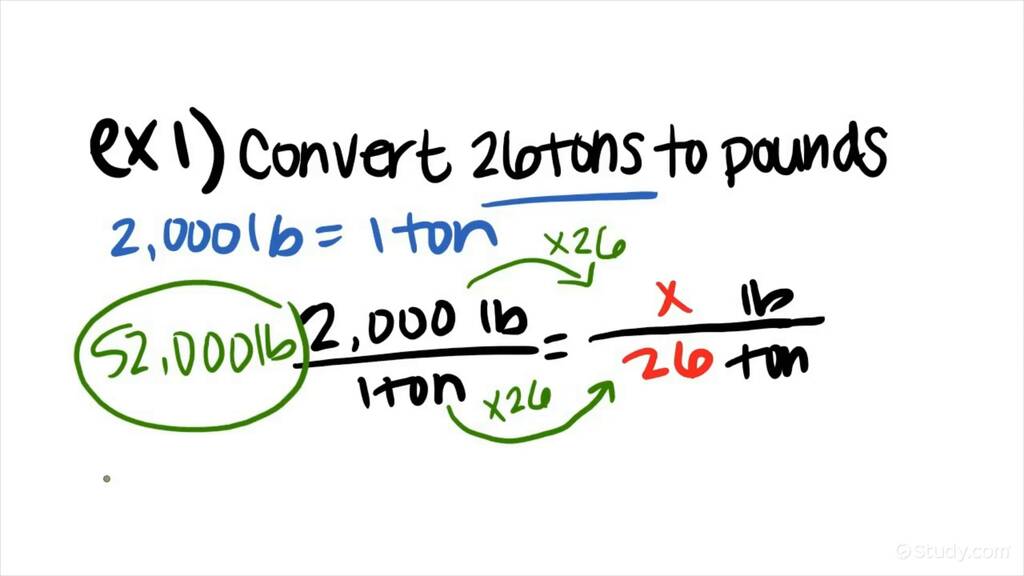 ex 1) Convert 26 tons to pounds
2,000 lb = 1 ton
x26
52,000 lb 2,000 lb = x lb
1 ton 26 ton
x26
©Study.com